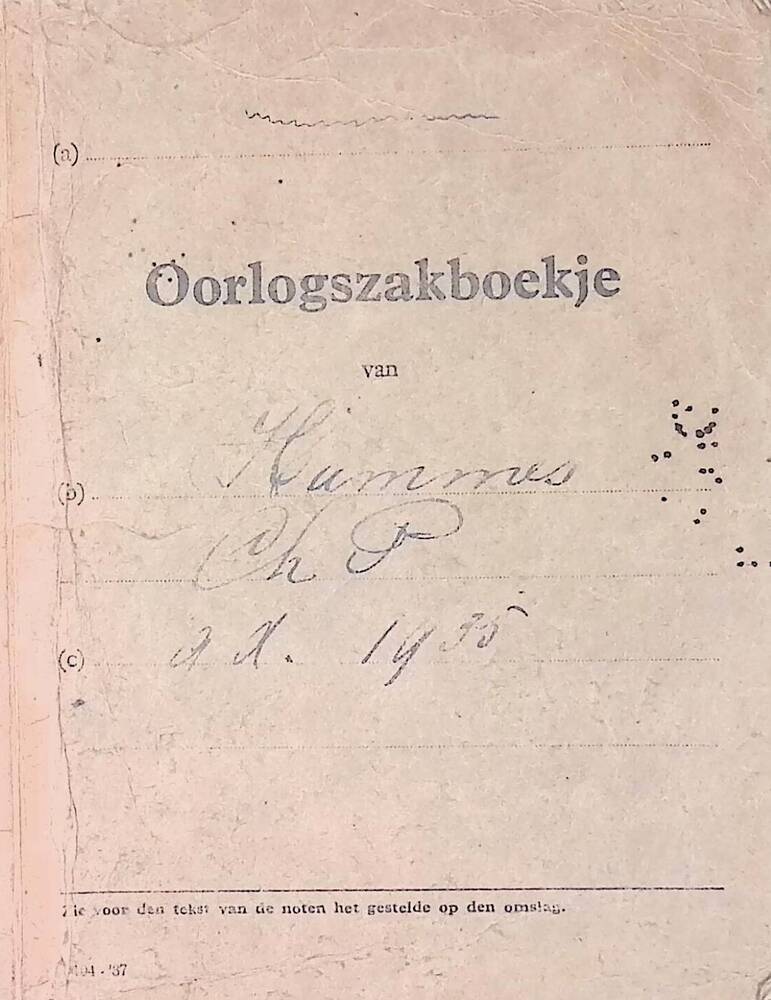 (a)
Oorlogszakboekje
van
(b) Hummes
Ch P
(c) 1935
Zie voor den tekst van de noten het gestelde op den omslag.
- '37